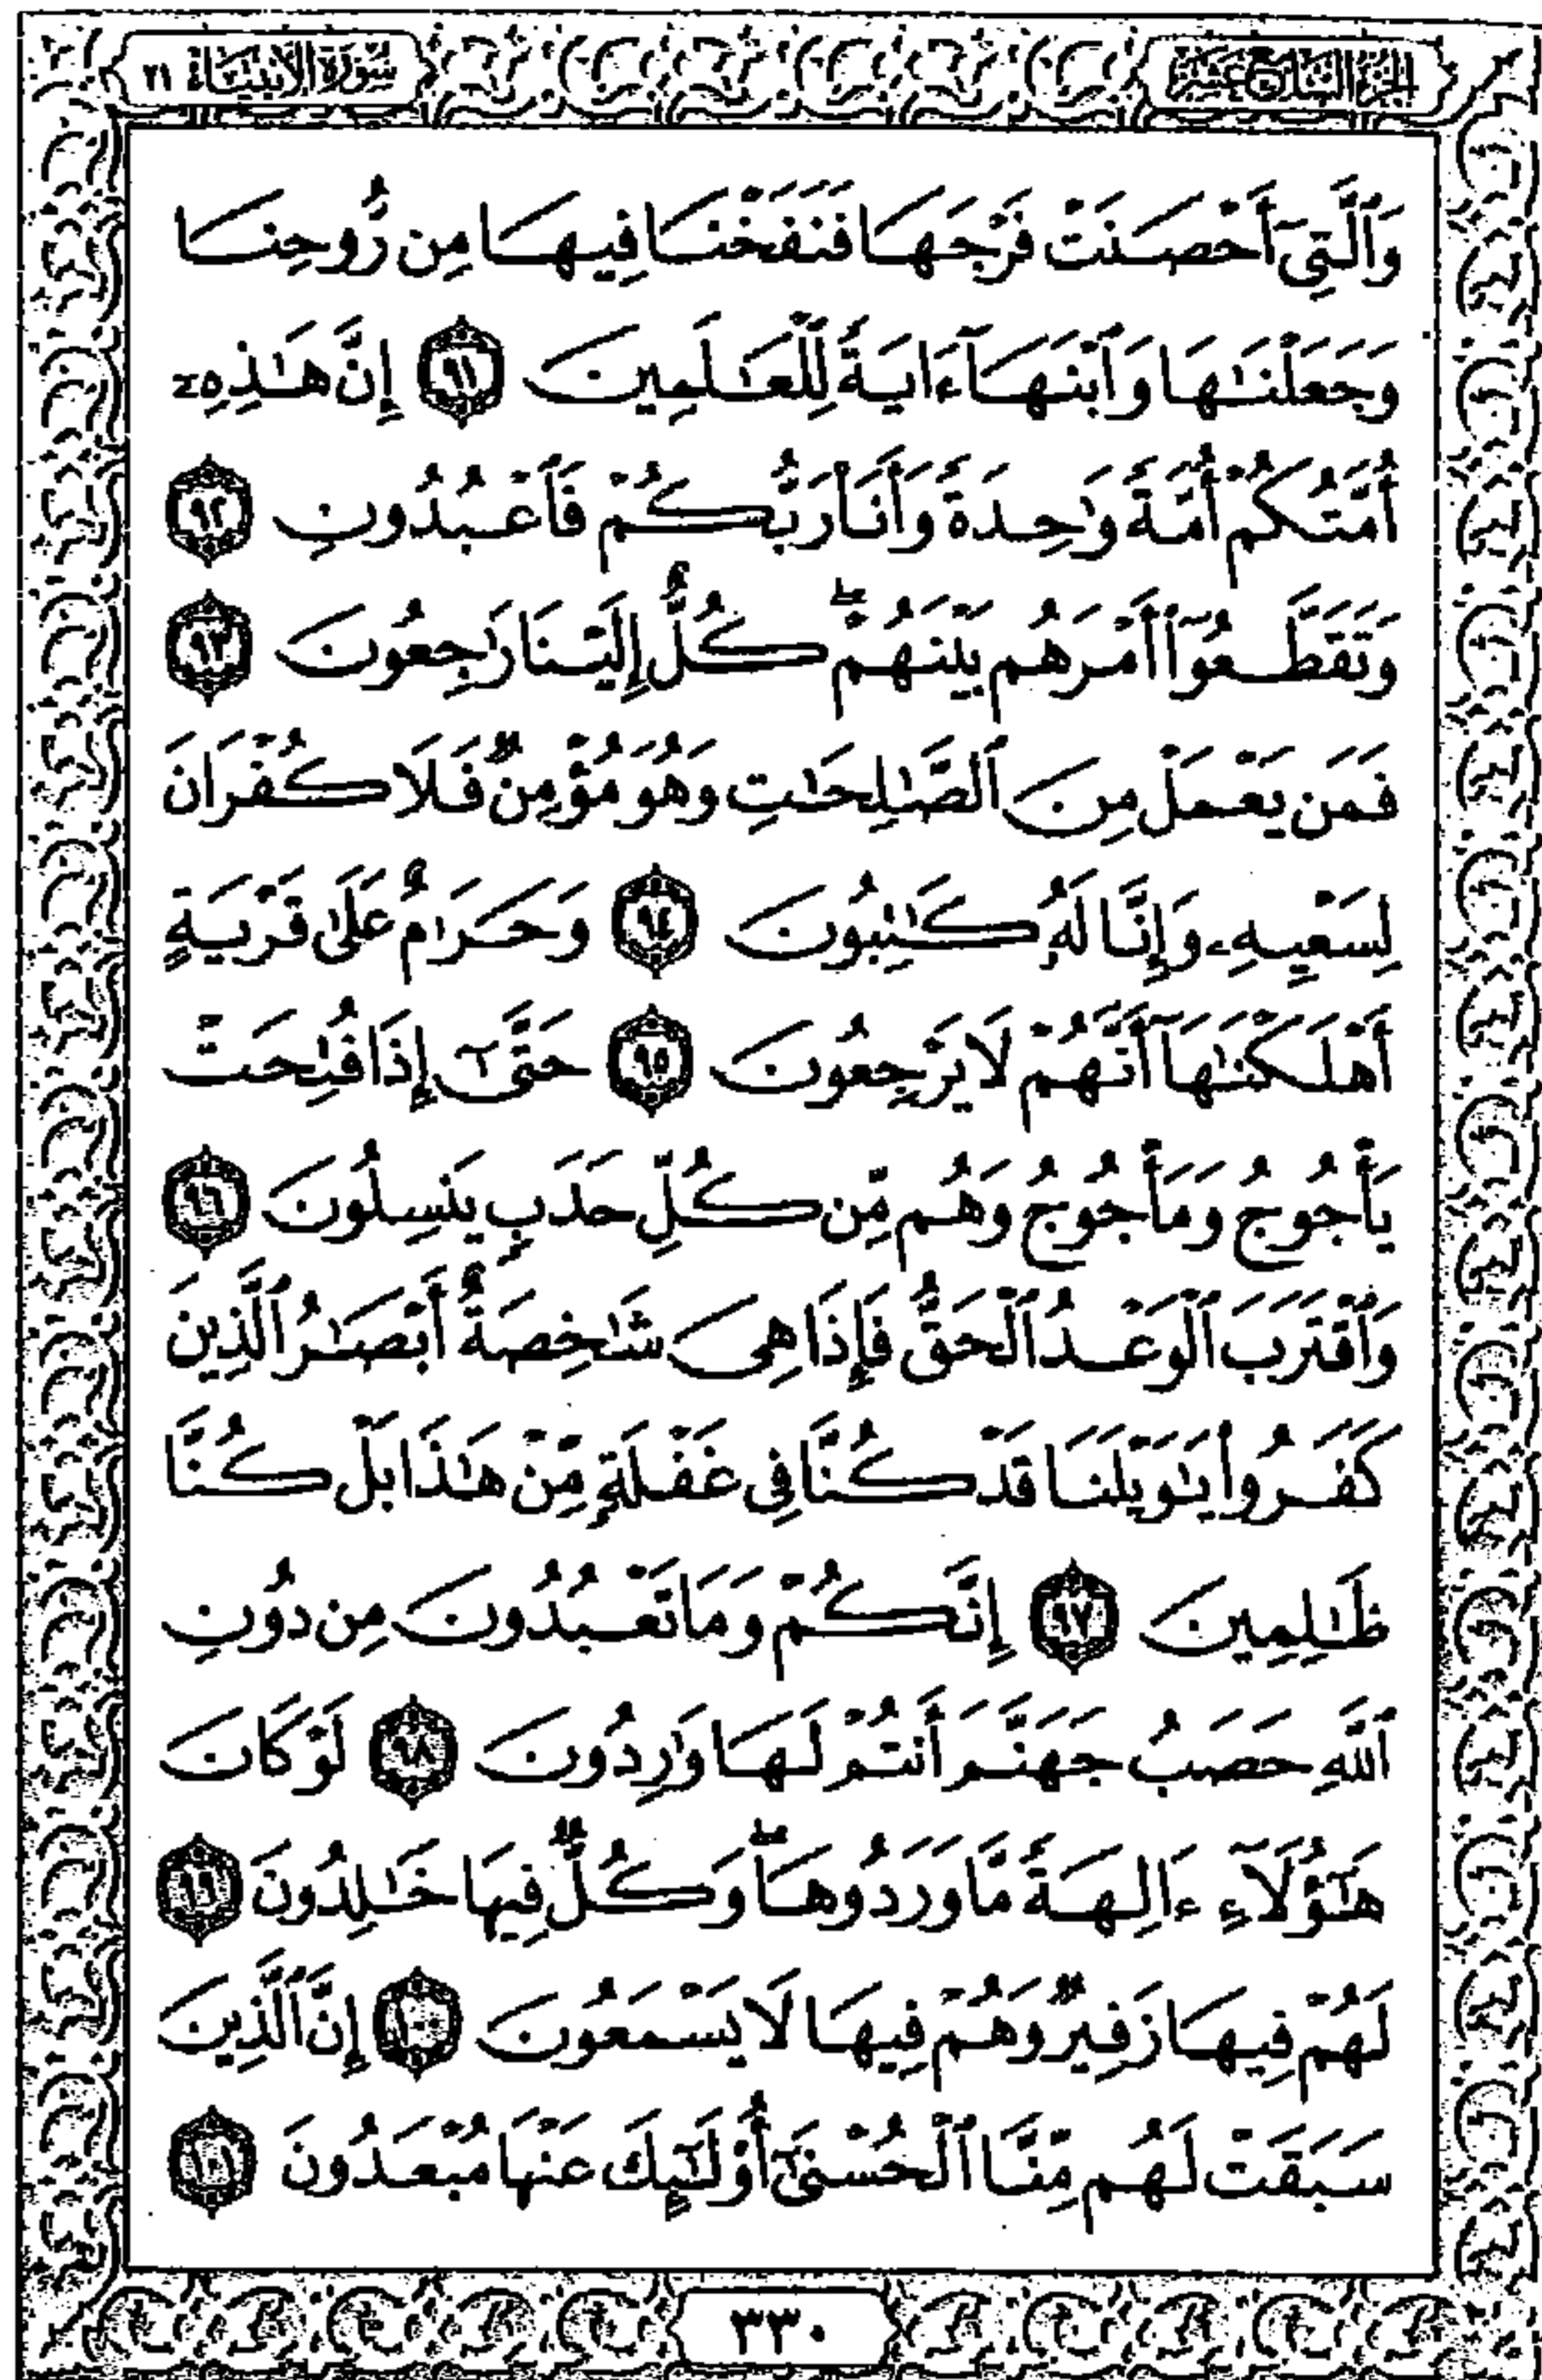 الجزء السابع عشر
سورة الأنبياء ٢١
وَٱلَّتِىٓ أَحْصَنَتْ فَرْجَهَا فَنَفَخْنَا فِيهَا مِن رُّوحِنَا
وَجَعَلْنَٰهَا وَٱبْنَهَآ ءَايَةً لِّلْعَٰلَمِينَ ٩١ إِنَّ هَٰذِهِۦٓ
أُمَّتُكُمْ أُمَّةً وَٰحِدَةً وَأَنَا۠ رَبُّكُمْ فَٱعْبُدُونِ ٩٢
وَتَقَطَّعُوٓا۟ أَمْرَهُم بَيْنَهُمْ ۖ كُلٌّ إِلَيْنَا رَٰجِعُونَ ٩٣
فَمَن يَعْمَلْ مِنَ ٱلصَّٰلِحَٰتِ وَهُوَ مُؤْمِنٌ فَلَا كُفْرَانَ
لِسَعْيِهِۦ وَإِنَّا لَهُۥ كَٰتِبُونَ ٩٤ وَحَرَٰمٌ عَلَىٰ قَرْيَةٍ
أَهْلَكْنَٰهَآ أَنَّهُمْ لَا يَرْجِعُونَ ٩٥ حَتَّىٰٓ إِذَا فُتِحَتْ
يَأْجُوجُ وَمَأْجُوجُ وَهُم مِّن كُلِّ حَدَبٍ يَنسِلُونَ ٩٦
وَٱقْتَرَبَ ٱلْوَعْدُ ٱلْحَقُّ فَإِذَا هِىَ شَٰخِصَةٌ أَبْصَٰرُ ٱلَّذِينَ
كَفَرُوا۟ يَٰوَيْلَنَا قَدْ كُنَّا فِى غَفْلَةٍ مِّنْ هَٰذَا بَلْ كُنَّا
ظَٰلِمِينَ ٩٧ إِنَّكُمْ وَمَا تَعْبُدُونَ مِن دُونِ
ٱللَّهِ حَصَبُ جَهَنَّمَ أَنتُمْ لَهَا وَٰرِدُونَ ٩٨ لَوْ كَانَ
هَٰٓؤُلَآءِ ءَالِهَةً مَّا وَرَدُوهَا ۖ وَكُلٌّ فِيهَا خَٰلِدُونَ ٩٩
لَهُمْ فِيهَا زَفِيرٌ وَهُمْ فِيهَا لَا يَسْمَعُونَ ١٠٠ إِنَّ ٱلَّذِينَ
سَبَقَتْ لَهُم مِّنَّا ٱلْحُسْنَىٰٓ أُو۟لَٰٓئِكَ عَنْهَا مُبْعَدُونَ ١٠١
٣٣٠